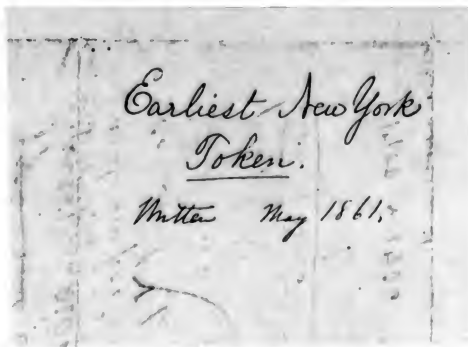 Earliest New York
Token.
Written May 1861.